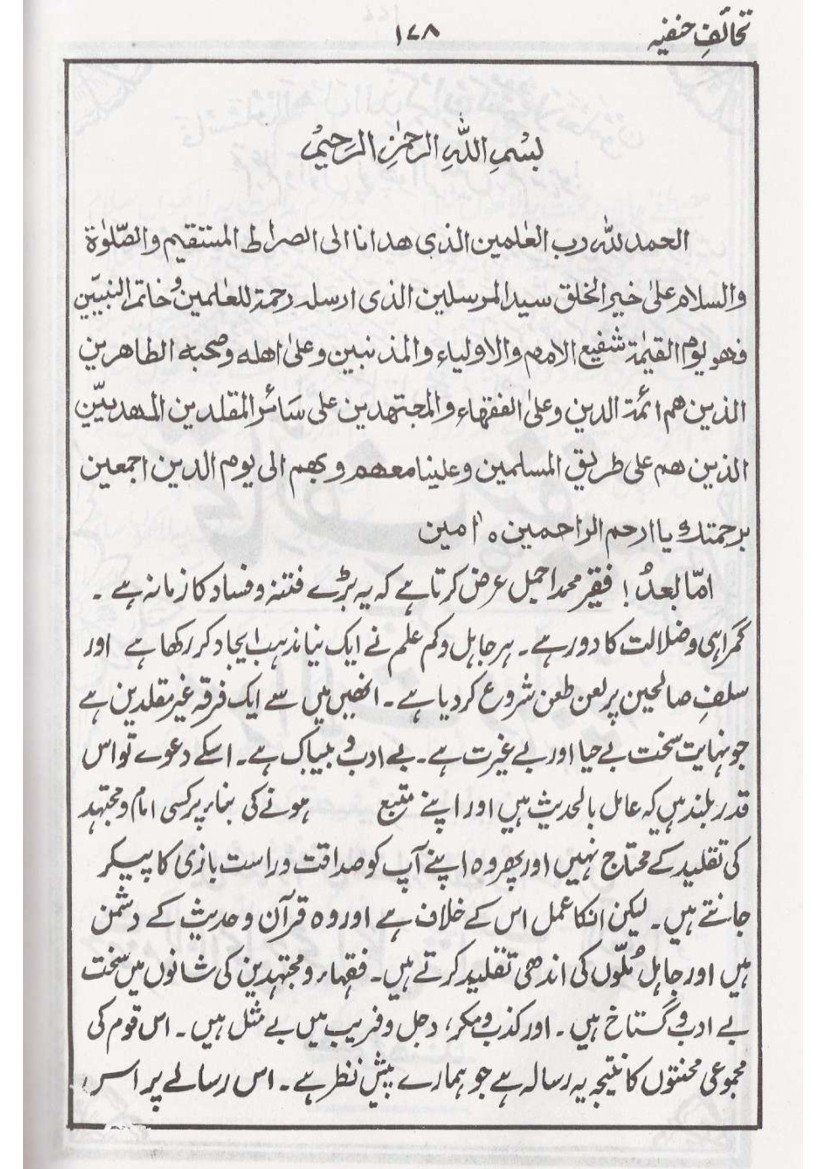 تحائف حنفیہ
۱۷۸
بسم اللہ الرحمٰن الرحیم
الحمد للہ رب العٰلمین الذی ھدانا الی الصراط المستقیم والصّلوٰۃ
والسلام علیٰ خیر الخلق سید المرسلین الذی ارسلہ رحمۃ للعٰلمین وخاتم النبیّین
فھو یوم القیٰمۃ شفیع الامم والاولیاء والمذنبین وعلیٰ اھلہ وصحبہ الطاھرین
الذین ھم ائمۃ الدین وعلیٰ الفقھاء والمجتھدین علی سائر المقلدین المھدیّین
الذین ھم علی طریق المسلمین وعلینا معھم وبھم الی یوم الدین اجمعین
برحمتک یا ارحم الراحمین ہ اٰمین
امّا بعدُ! فقیر محمد اجمل عرض کرتا ہے کہ یہ بڑے فتنہ وفساد کا زمانہ ہے ۔
گمراہی وضلالت کا دور ہے ۔ ہر جاہل وکم علم نے ایک نیا مذہب ایجاد کر رکھا ہے اور
سلفِ صالحین پر لعن طعن شروع کر دیا ہے ۔ انھیں میں سے ایک فرقہ غیر مقلدین ہے
جو نہایت سخت بے حیا اور بے غیرت ہے ۔ بے ادب و بیباک ہے ۔ اسکے دعوے تو اس
قدر بلند ہیں کہ عامل بالحدیث ہیں اور اپنے متبع ہونے کی بناء پر کسی امام ومجتہد
کی تقلید کے محتاج نہیں اور پھر وہ اپنے آپ کو صداقت وراست بازی کا پیکر
جانتے ہیں ۔ لیکن انکا عمل اس کے خلاف ہے اور وہ قرآن وحدیث کے دشمن
ہیں اور جاہل مُلّوں کی اندھی تقلید کرتے ہیں ۔ فقہاء ومجتہدین کی شانوں میں سخت
بے ادب وگستاخ ہیں ۔ اور کذب ومکر، دجل وفریب میں بے مثل ہیں ۔ اس قوم کی
مجموعی محنتوں کا نتیجہ یہ رسالہ ہے جو ہمارے پیش نظر ہے ۔ اس رسالے پر